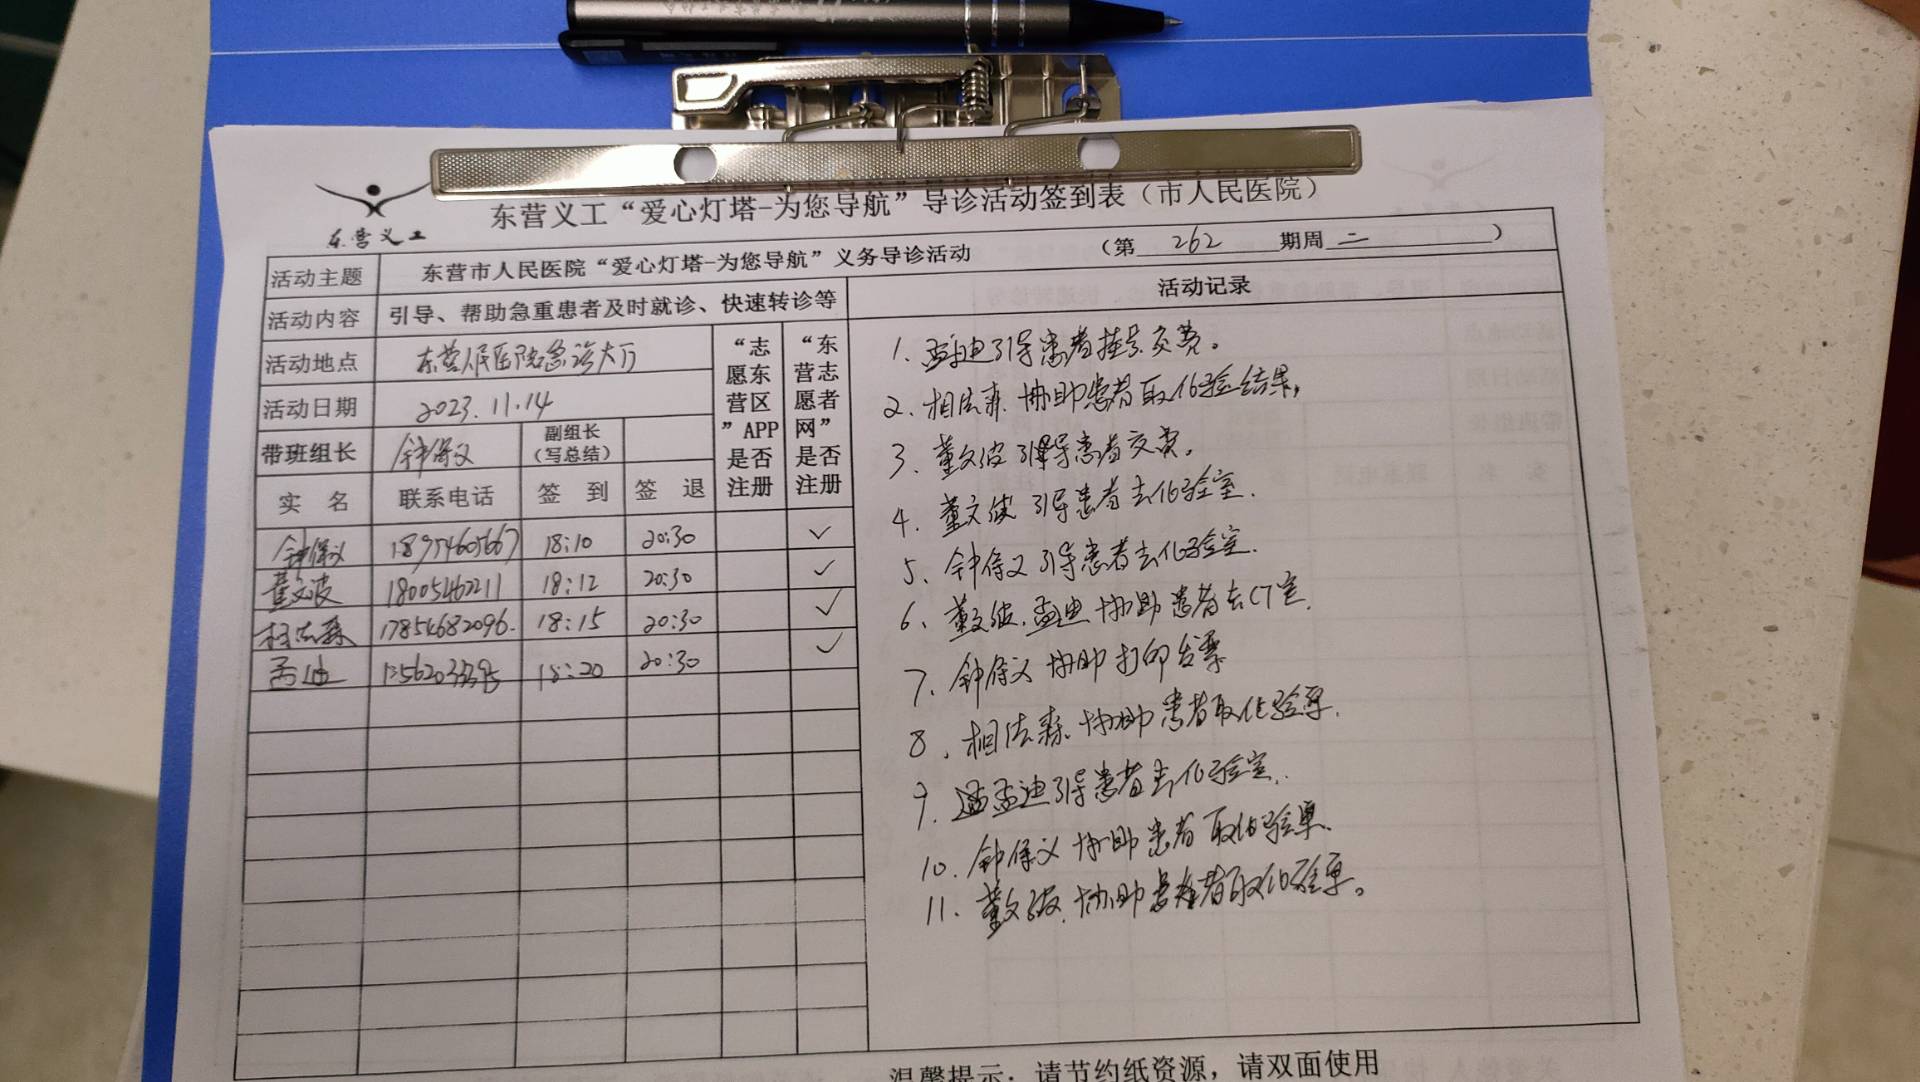 东营义工“爱心灯塔-为您导航”导诊活动签到表（市人民医院）
东营义工
活动主题 东营市人民医院“爱心灯塔-为您导航”义务导诊活动 （第 262 期周 二 ）
活动内容 引导、帮助急重患者及时就诊、快速转诊等
活动记录
活动地点 东营人民医院急诊大厅
活动日期 2023.11.14
带班组长 钟保义 副组长（写总结）
“志愿东营区”APP是否注册
“东营志愿者网”是否注册
实 名 联系电话 签 到 签 退
钟保义 18954605667 18:10 20:30 ✓
董文波 18005462211 18:12 20:30 ✓
相法森 17854682096. 18:15 20:30 ✓
孟迪 18:20 20:30 ✓
1. 孟迪引导患者挂号交费。
2. 相法森 协助患者取化验结果,
3. 董文波 引导患者交费。
4. 董文波 引导患者去化验室.
5. 钟保义 引导患者去化验室.
6. 董文波.孟迪 协助患者去CT室.
7. 钟保义 协助打印发票
8. 相法森. 协助患者取化验单.
9. 孟迪引导患者去化验室.
10. 钟保义 协助患者取化验单.
11. 董文波. 协助患者取化验单。
温馨提示：请节约纸资源，请双面使用